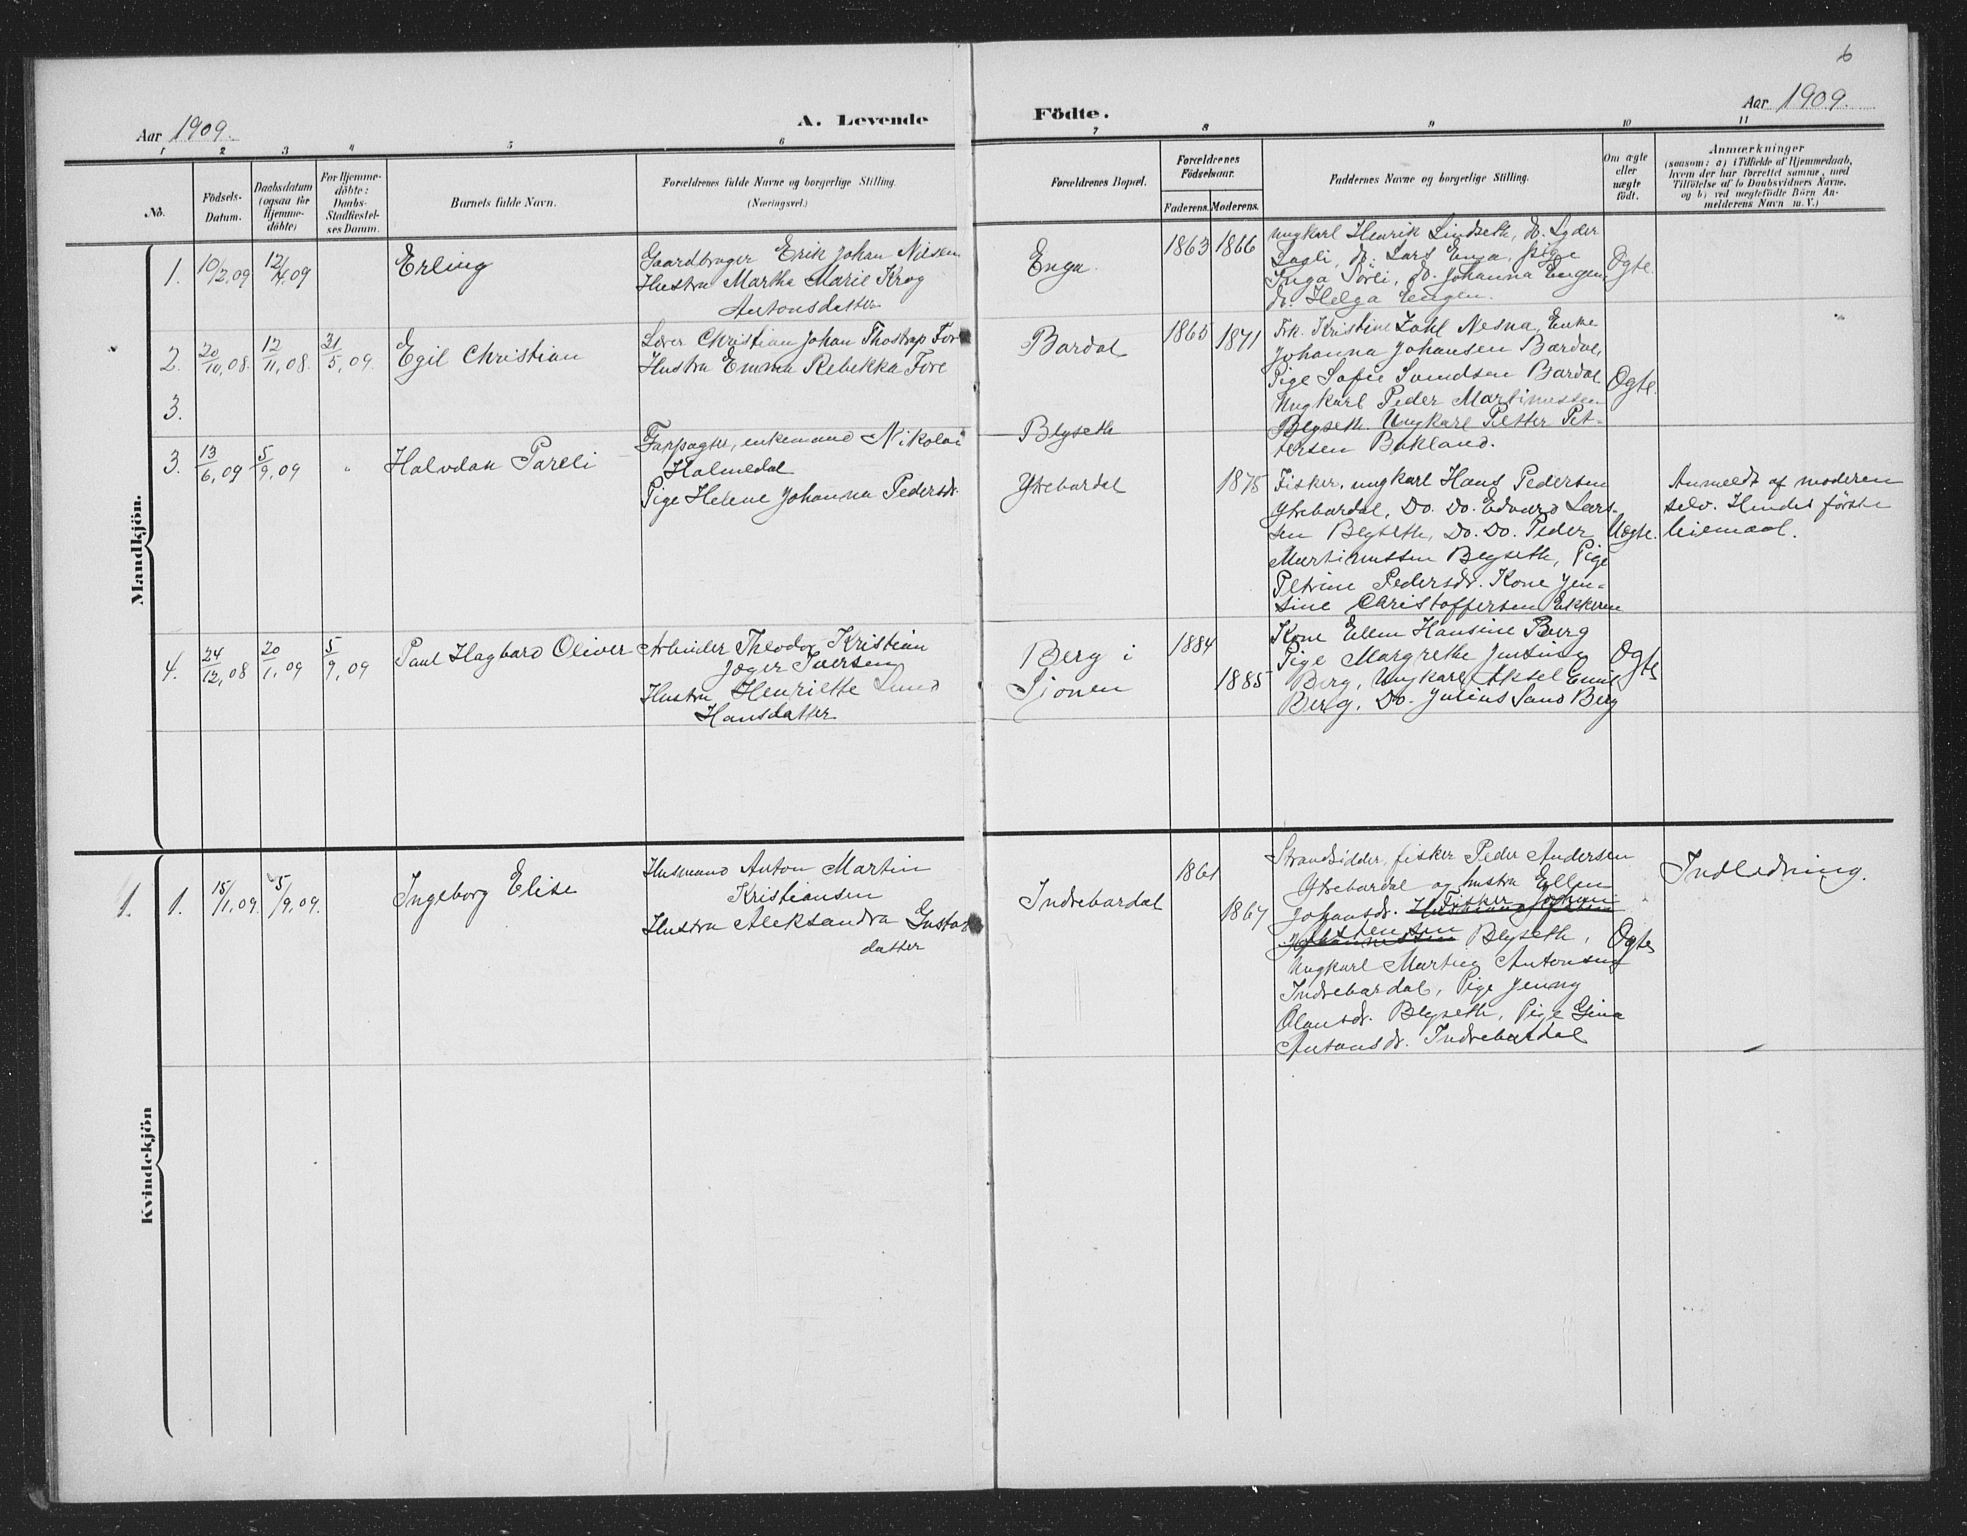 6
Aar 1909.
A. Levende
Födte.
Aar 1909.
1 2 3 4 5 6 7 8 9 10 11
No.
Födsels-
Datum.
Daabsdatum
(ogsaa for
Hjemme-
döbte)
For Hjemme-
döbte:
Daabs-
Stadfæstel-
ses Datum.
Barnets fulde Navn.
Forældrenes fulde Navne og borgerlige Stilling.
(Næringsvei.)
Forældrenes Bopæl.
Forældrenes
Födselsaar.
Faderens. Moderens.
Faddernes Navne og borgerlige Stilling.
Om ægte
eller
uægte
födt.
Anmærkninger
(saasom: a) i Tilfælde af Hjemmedaab,
hvem der har forrettet samme, med
Tilföielse af to Daabsvidners Navne,
og b) ved uægtefödte Börn An-
melderens Navn m. V.)
Mandkjön.
1. 10/2,09 12/4,09
Erling
Gaardbruger Erik Johan Nilsen
Hustru Martha Marie Krog
Antonsdatter
Enga.
1863 1866
Ungkarl Henrik Lindseth, do. Lyder
Lagli, do. Lars Enga, pige
Inga Sörli, do. Johanna Engen,
do. Helga Engen.
Ægte.
2. 20/10,08. 12/11,08. 31/5,09.
Egil Christian
Lærer Christian Johan Thostrup Fore
Hustru Emma Rebekka Fore
Bardal
1865 1871
Frk. Kristine Zahl Nesna, Enke
Johanna Johansen Bardal,
Pige Sofie Svendsen Bardal
Ungkarl Peder Martinussen
Blyseth Ungkarl Petter Pet-
tersen Bakland.
Ægte.
3.
3. 13/6,09 5/9,09 "
Halvdan Pareli
Forpagter, enkemand Nikolai
Halmedal
Pige Helene Johanna Pedersdr.
Blyseth
Ytrebardal
1875
Fisker, ungkarl Hans Pedersen
Ytrebardal, Do. Do. Edvard Lars-
sen Blyseth, Do. Do. Peder
Martinussen Blyseth, Pige
Petrine Pedersdr. Kone Jen-
sine Christoffersen Ekkeren
Uægte.
Anmeldt af moderen
selv. Hendes første
leiemaal.
4. 24/12,08 20/1,09 5/9,09
Paul Hagbard Oliver
Arbeider Theodor Kristian
Jöger Iversen
Hustru Henriette Lund
Hansdatter
Berg i
Sjonen
1884
1885
Kone Ellen Hansine Berg
Pige Margrethe Jensine
Berg, Ungkarl Aksel Emil
Berg, Do. Julius Sand Berg
Ægte
Kvindekjön
1. 1. 15/1,09. 5/9,09.
Ingeborg Elise
Husmand Anton Martin
Kristiansen
Hustru Aleksandra Gustav
datter
Indrebardal
1861
1867
Strandsidder, fisker Peder Andersen
Ytrebardal og hustru Ellen
Johansdr. Fisker Johan
Blyseth,
Ungkarl Martin Antonsen
Indrebardal, Pige Jenny
Olausdr. Blyseth, Pige Gina
Antonsdr. Indrebardal
Ægte
Indledning.